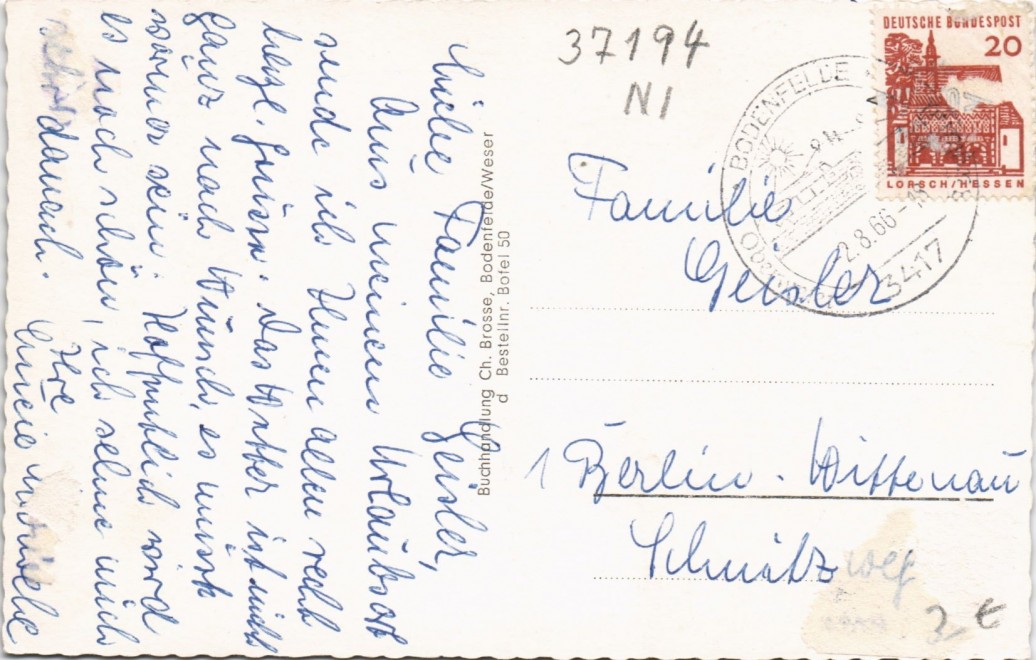 Liebe Familie Geisler,
Aus meinem Urlaubsort
sende ich Ihnen allen recht
herzl. Grüsse. Das Wetter ist nicht
ganz nach Wunsch, es müsste
wärmer sein. Hoffentlich wird
es noch schön, ich sehne mich
schon danach.
Ihre
Buchhandlung Ch. Brosse, Bodenfelde/Weser
d Bestellnr. Bofel 50
37194
NI
DEUTSCHE BUNDESPOST
20
LORSCH/HESSEN
BODENFELDE
2.8.66
3417
Familie
Geisler
1 Berlin-Wittenau
Schmitzweg
2 €